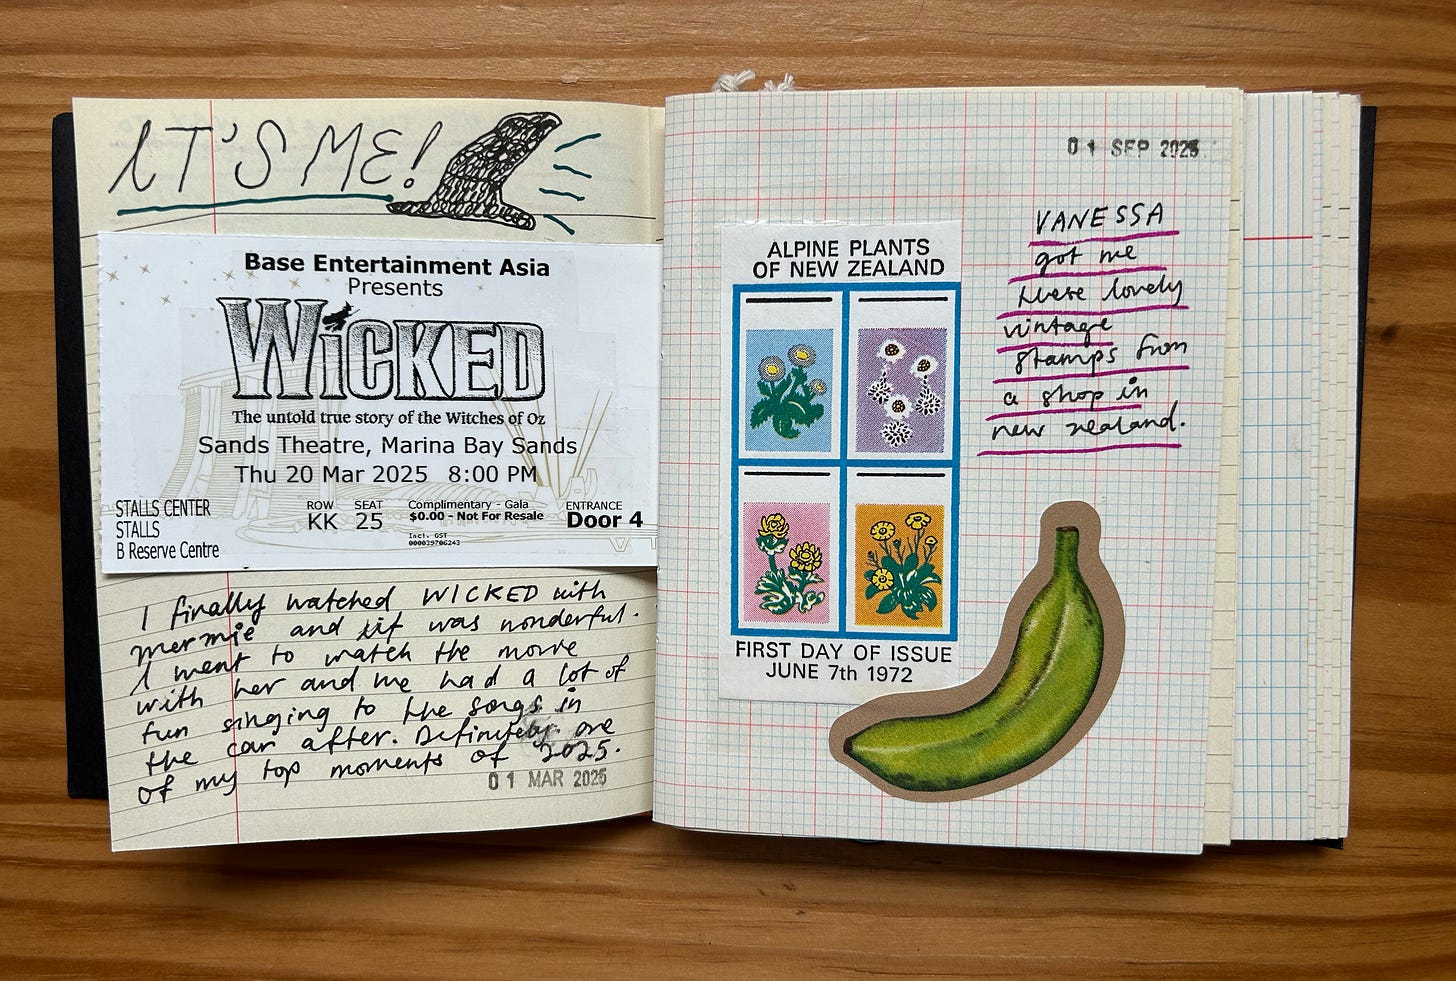 IT'S ME!
Base Entertainment Asia
Presents
WICKED
The untold true story of the Witches of Oz
Sands Theatre, Marina Bay Sands
Thu 20 Mar 2025 8:00 PM
STALLS CENTER
STALLS
B Reserve Centre
ROW
KK
SEAT
25
Complimentary - Gala
$0.00 - Not For Resale
Incl. GST
000039706243
ENTRANCE
Door 4
I finally watched WICKED with
mermie and it was wonderful.
I went to watch the movie
with her and we had a lot of
fun singing to the songs in
the car after. Definitely one
of my top moments of 2025.
01 MAR 2025
01 SEP 2025
VANESSA
got me
these lovely
vintage
stamps from
a shop in
new zealand.
ALPINE PLANTS
OF NEW ZEALAND
FIRST DAY OF ISSUE
JUNE 7th 1972